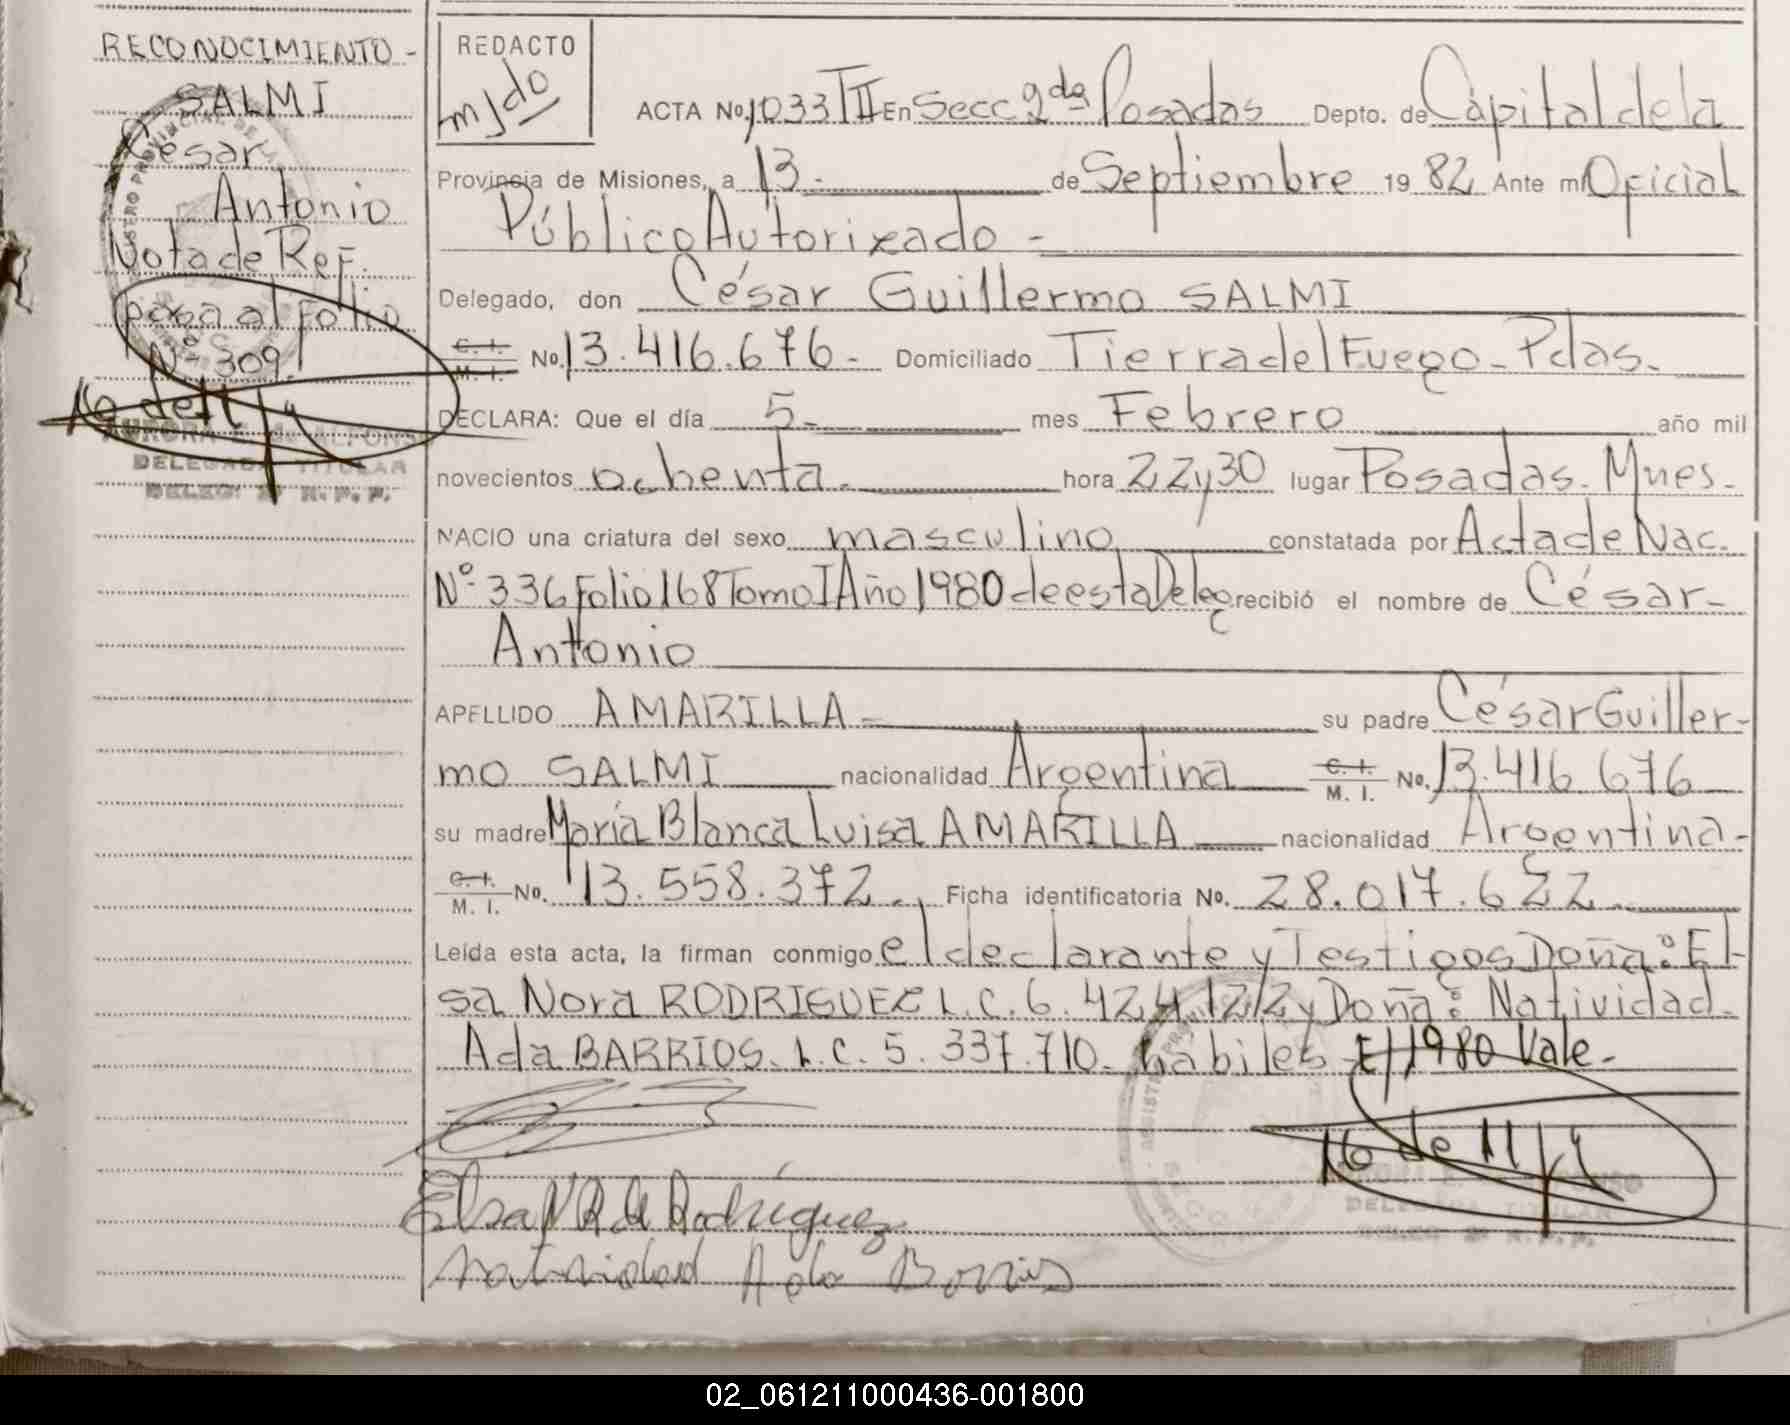 RECONOCIMIENTO -
SALMI
César
Antonio
Nota de Ref.
pasa al Folio
Nº 309.
DELEGADA TITULAR
DELEG. 2ª R. P. P.
REDACTO
ACTA No. 1033 T II En Secc 2da Posadas Depto. de Capital de la
Provincia de Misiones, a 13. de Septiembre 19 82 Ante mí Oficial
Público Autorizado -
Delegado, don César Guillermo SALMI
C. I. M. I. No. 13.416.676- Domiciliado Tierra del Fuego - Pdas.
DECLARA: Que el día 5- mes Febrero año mil
novecientos ochenta. hora 22y30 lugar Posadas. Mnes.
NACIO una criatura del sexo masculino constatada por Acta de Nac.
Nº 336 Folio 168 Tomo I Año 1980 de esta Deleg recibió el nombre de César-
Antonio
APELLIDO AMARILLA - su padre César Guiller-
mo SALMI nacionalidad Argentina C. I. M. I. No. 13.416.676
su madre María Blanca Luisa AMARILLA nacionalidad Argentina-
C. I. M. I. No. 13.558.372., Ficha identificatoria No. 28.017.622
Leída esta acta, la firman conmigo el declarante y Testigos Doña: El-
sa Nora RODRIGUEZ L.C. 6.424.122 y Doña: Natividad
Ada BARRIOS. L.C. 5.337.710- habiles E/1980 Vale.-
Elsa N R de Rodríguez
Natividad Ada Barrios
DELEGADA TITULAR
DELEG 2ª R. P. P.
02_061211000436-001800